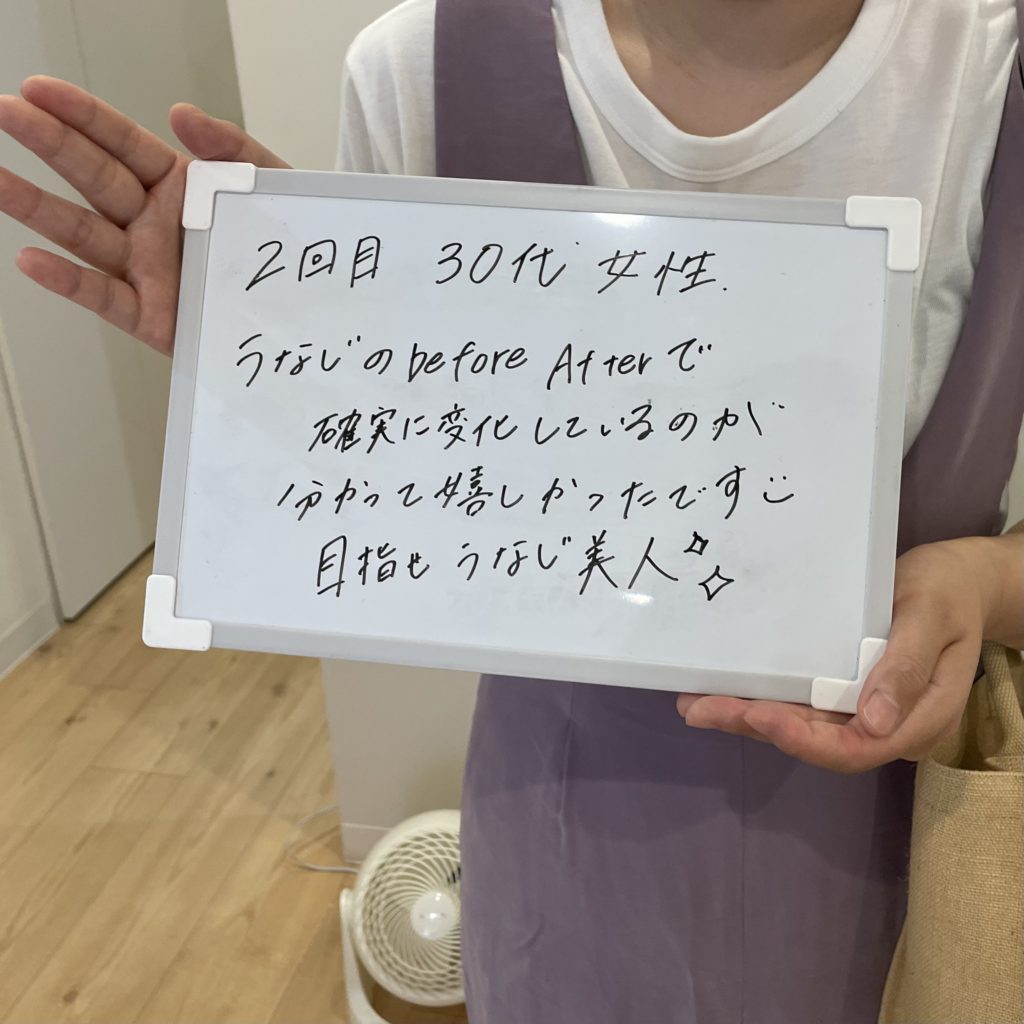 2回目 30代 女性.
うなじのbefore Afterで
確実に変化しているのが
分かって嬉しかったです
目指せ うなじ美人